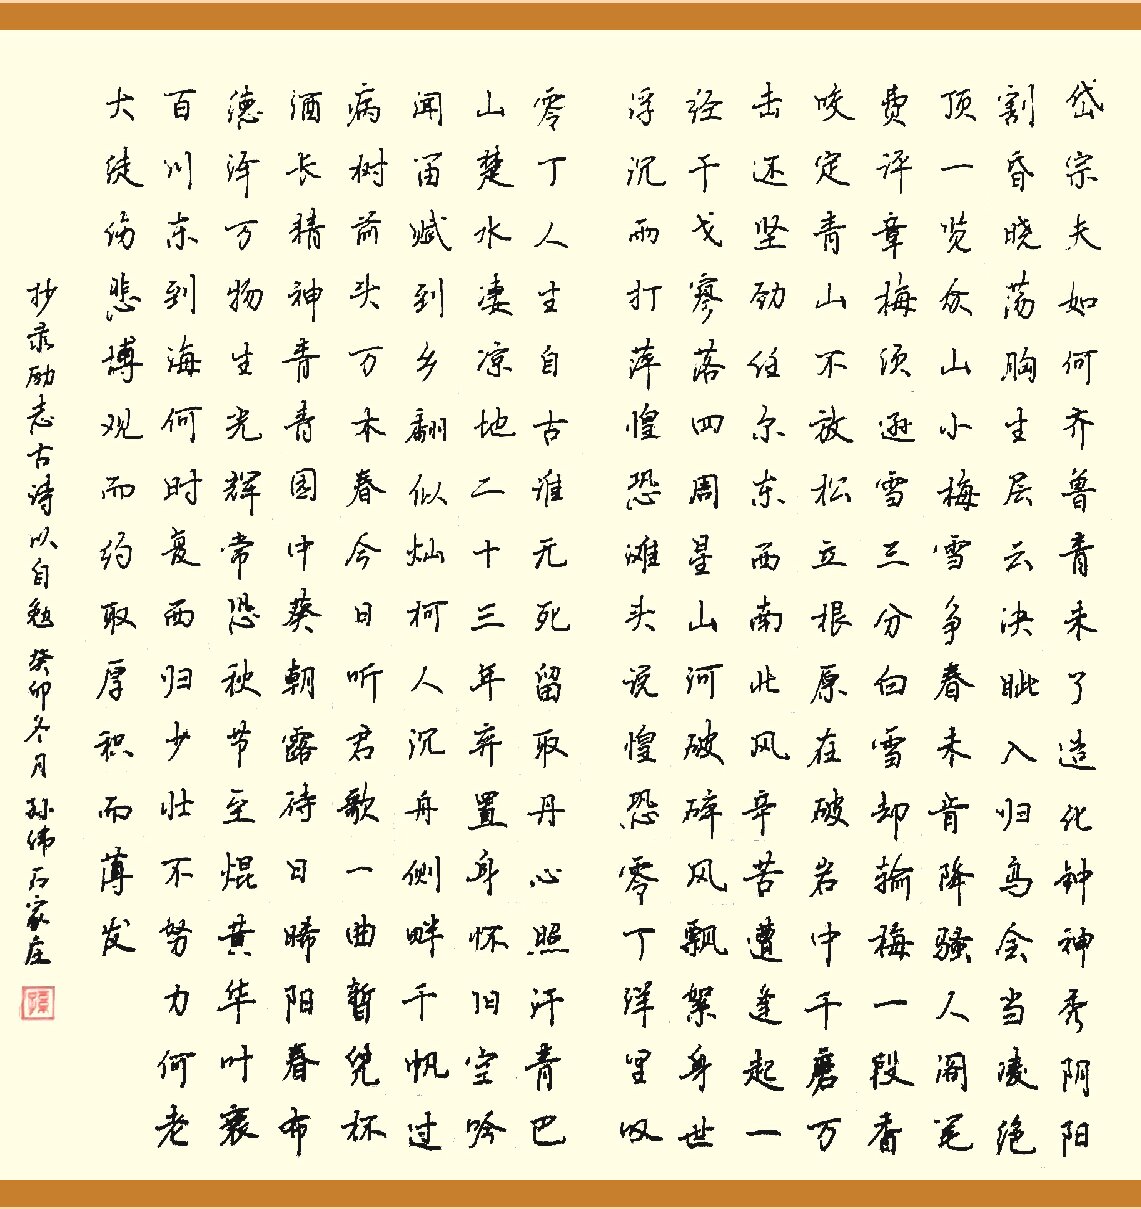 岱宗夫如何齐鲁青未了造化钟神秀阴阳
割昏晓荡胸生层云决眦入归鸟会当凌绝
顶一览众山小梅雪争春未肯降骚人阁笔
费评章梅须逊雪三分白雪却输梅一段香
咬定青山不放松立根原在破岩中千磨万
击还坚劲任尔东西南北风辛苦遭逢起一
经干戈寥落四周星山河破碎风飘絮身世
浮沉雨打萍惶恐滩头说惶恐零丁洋里叹
零丁人生自古谁无死留取丹心照汗青巴
山楚水凄凉地二十三年弃置身怀旧空吟
闻笛赋到乡翻似烂柯人沉舟侧畔千帆过
病树前头万木春今日听君歌一曲暂凭杯
酒长精神青青园中葵朝露待日晞阳春布
德泽万物生光辉常恐秋节至焜黄华叶衰
百川东到海何时复西归少壮不努力何老
大徒伤悲博观而约取厚积而薄发
抄录励志古诗以自勉 癸卯冬月 孙伟石家庄